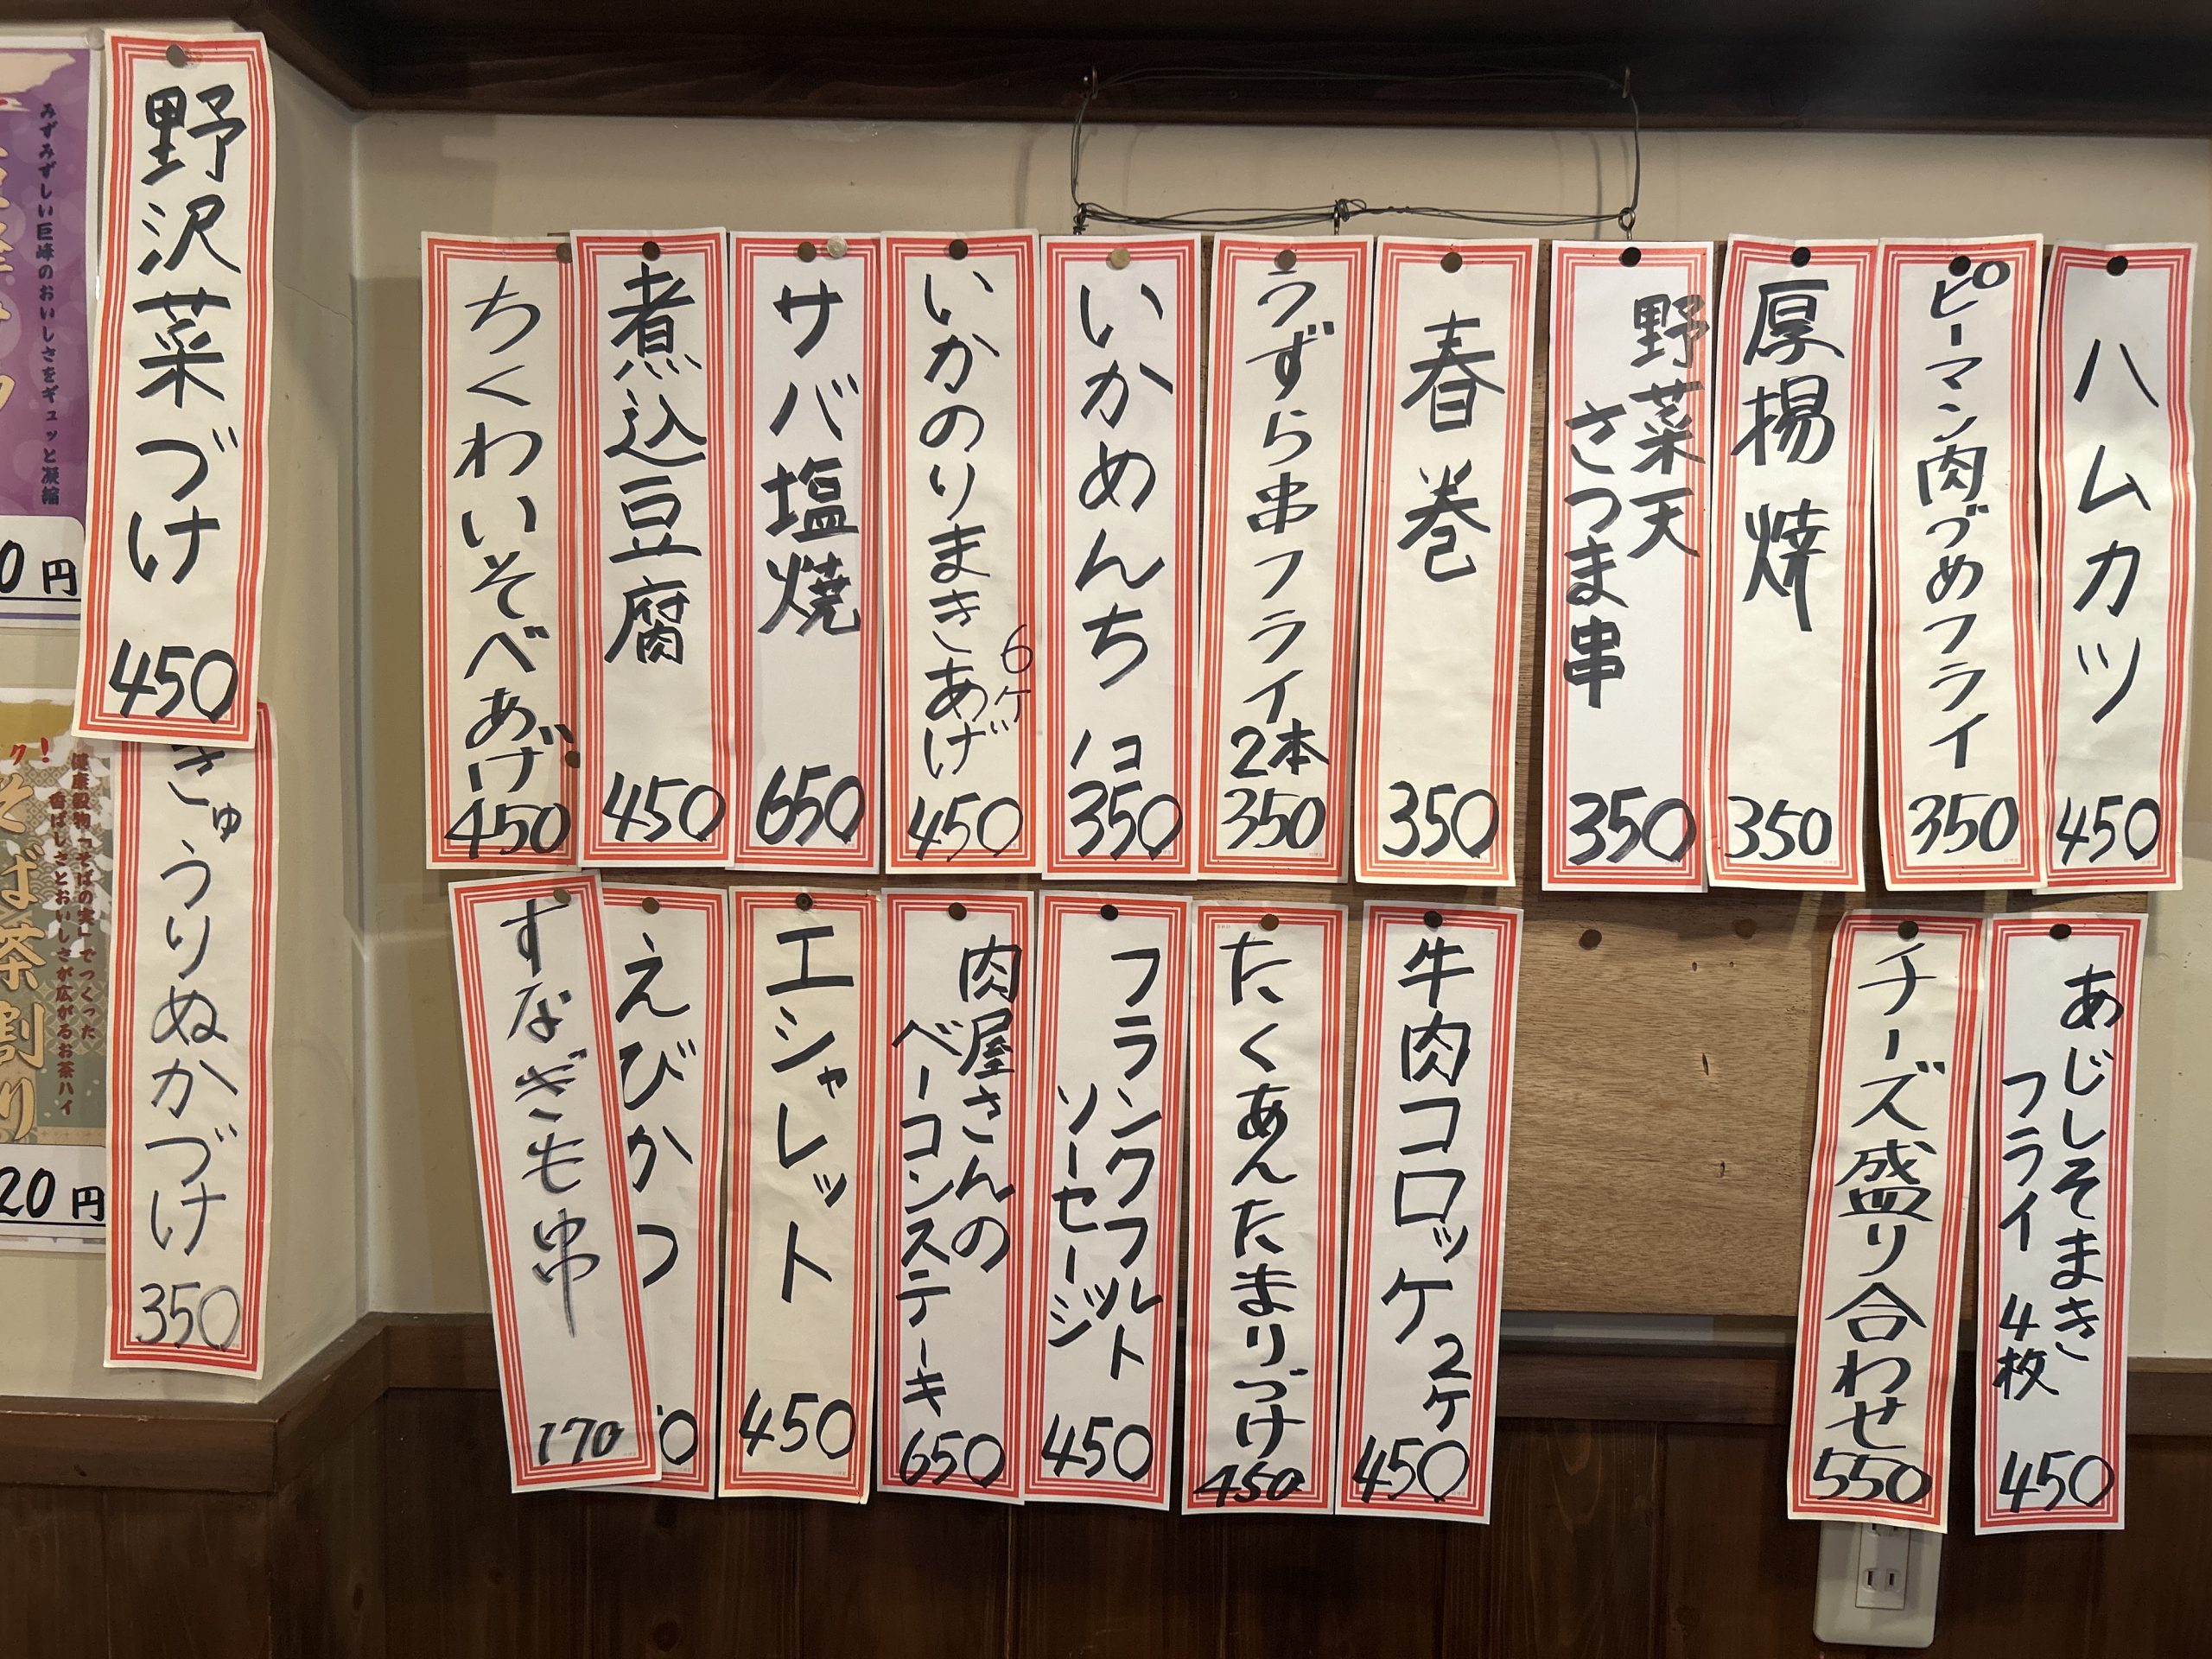 ハムカツ
450
ピーマン肉づめフライ
350
厚揚焼
350
野菜天
さつま串
350
春巻
350
うずら串フライ
2本
350
いかめんち
1コ
350
いかのりまきあげ
6ケ
450
サバ塩焼
650
煮込豆腐
450
ちくわいそべあげ
450
あじしそまき
フライ 4枚
450
チーズ盛り合わせ
550
牛肉コロッケ
2ケ
450
たくあんたまりづけ
450
フランクフルト
ソーセージ
450
肉屋さんの
ベーコンステーキ
650
エシャレット
450
えびかつ
0
すなぎも串
170
野沢菜づけ
450
きゅうりぬかづけ
350
みずみずしい巨峰のおいしさをギュッと凝縮
0円
ク!
そば茶割り
健康穀物「そばの実」でつくった
香ばしさとおいしさが広がるお茶ハイ
20円